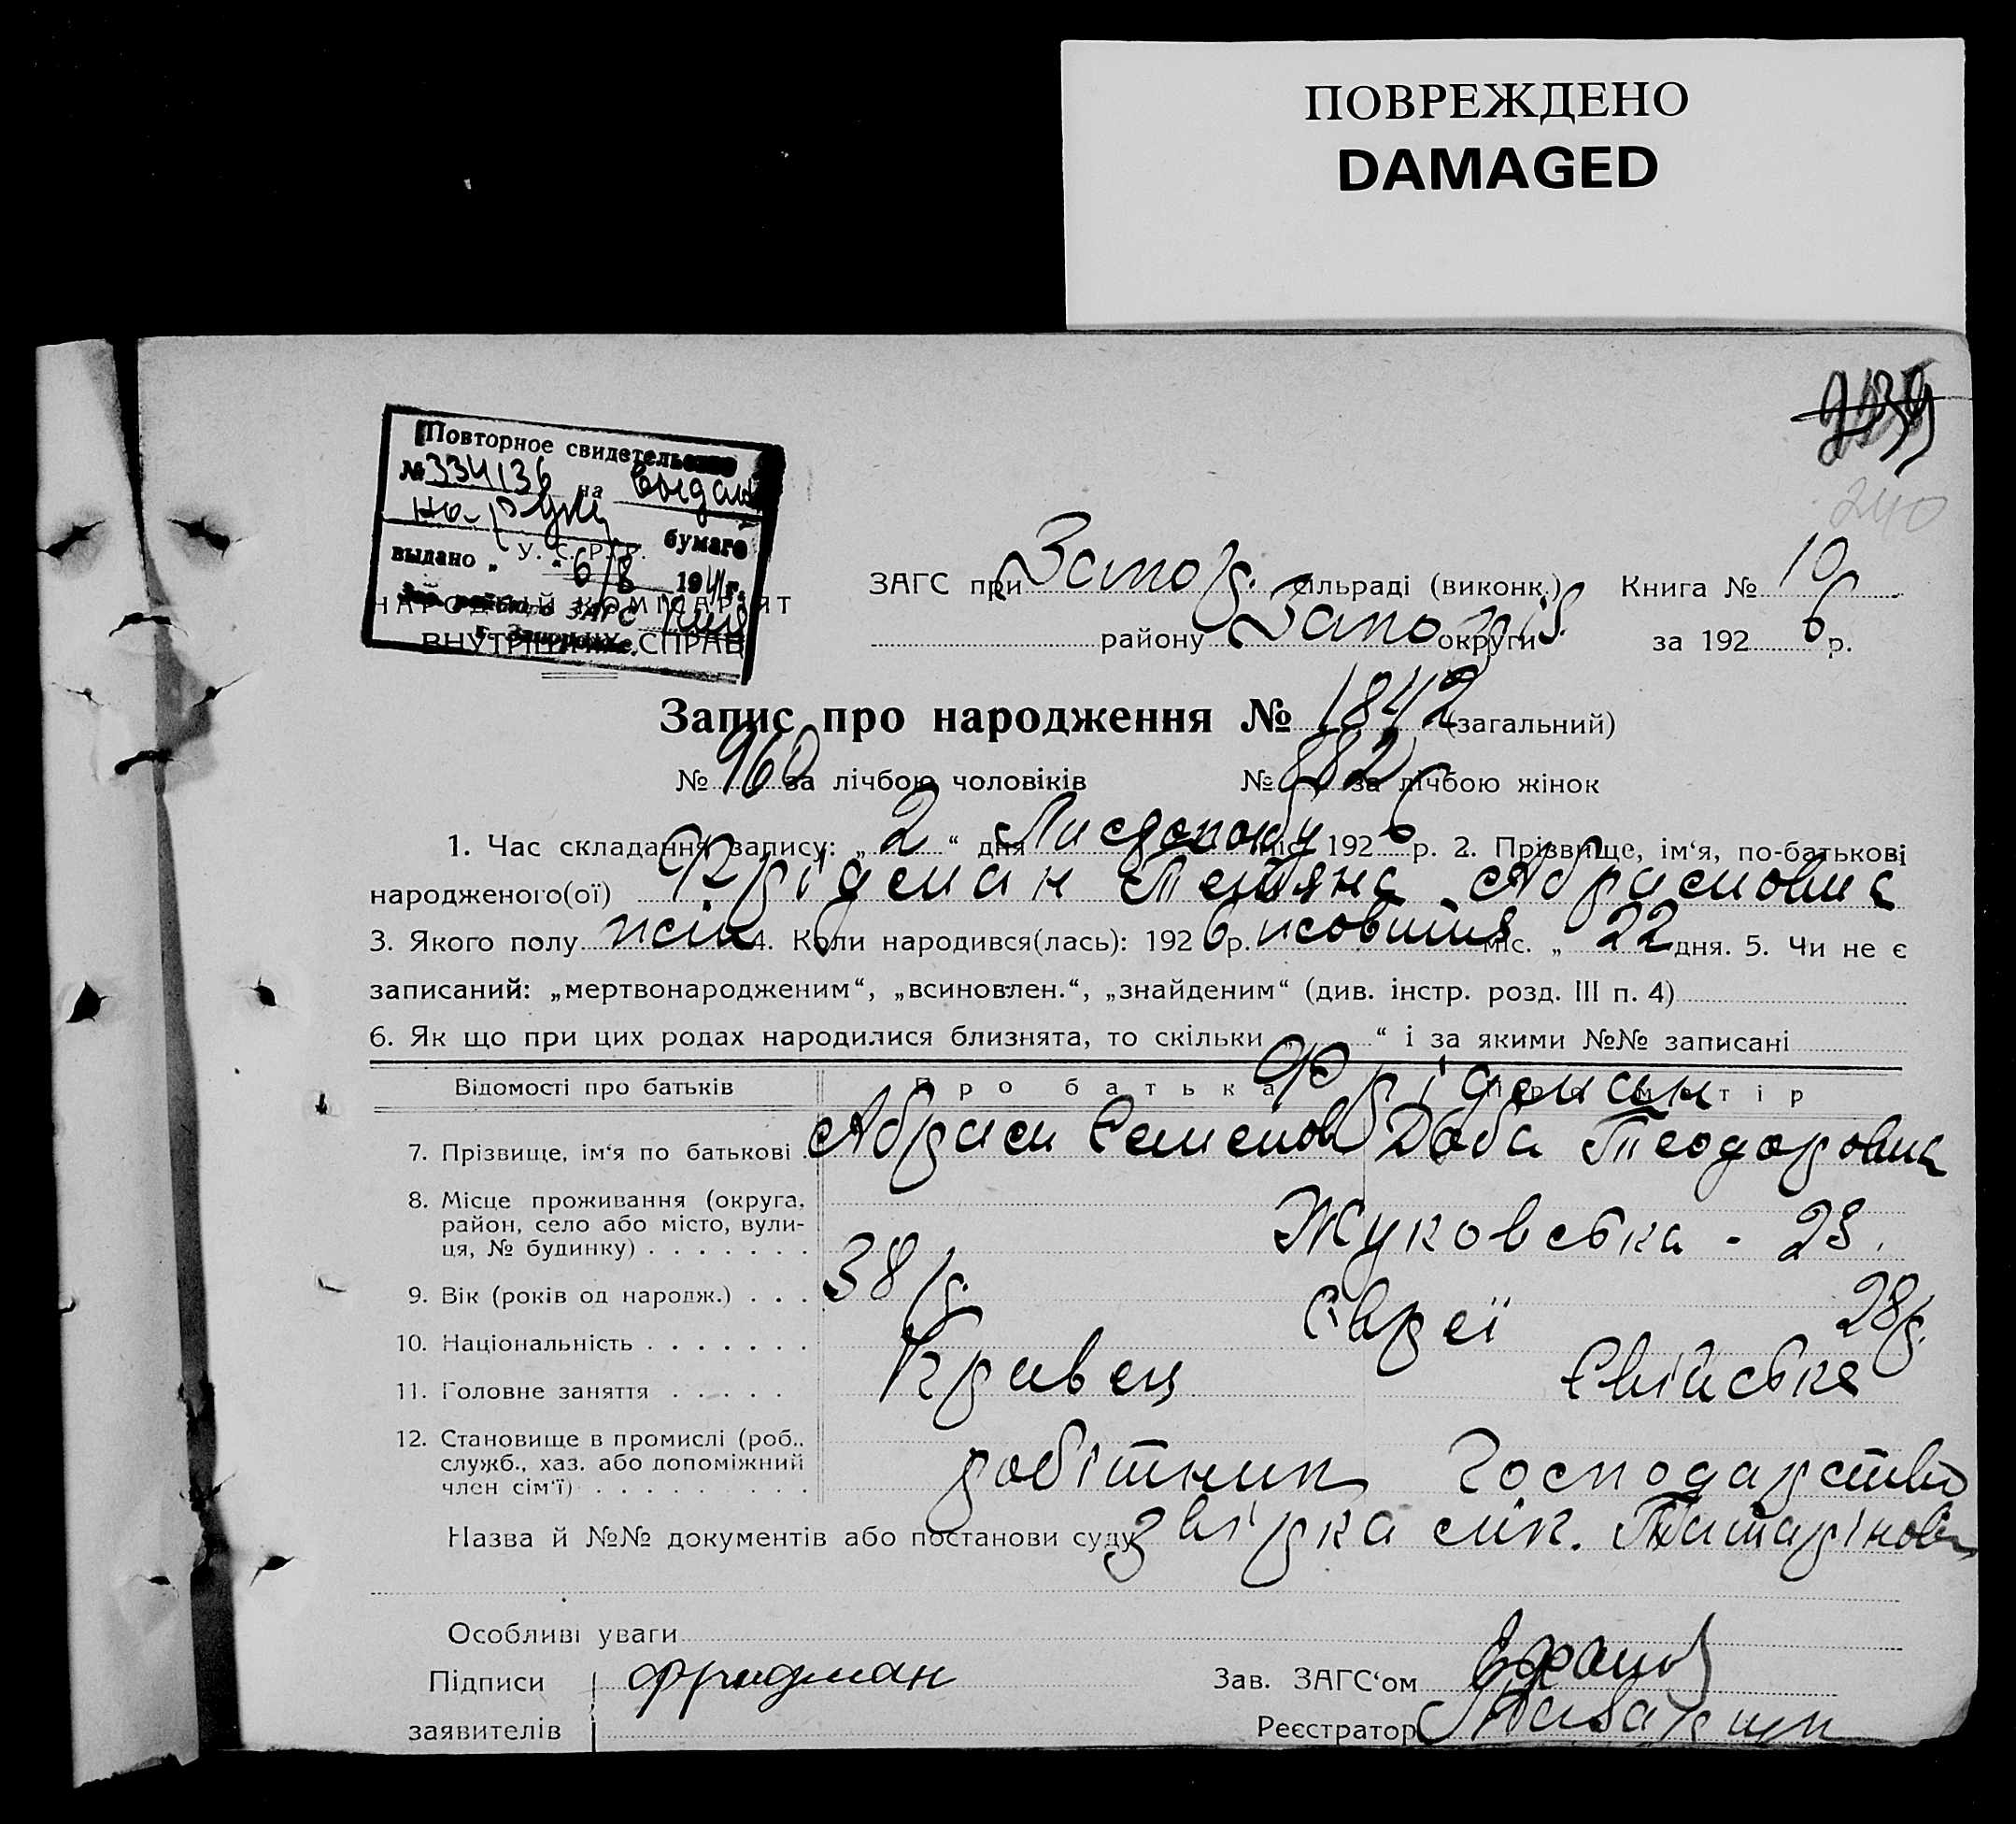 ПОВРЕЖДЕНО
DAMAGED
240
Повторное свидетельство
№ 334136 на выдан
на руки бумаге
У. С. Р. Р.
выдано „ 6/8 1941г.
ЗАГС
г. Запорожье
НАРОДНІЙ КОМІСАРІЯТ
ВНУТРІШНІХ СПРАВ
ЗАГС при Запор. сільраді (виконк.) Книга № 10
району Запоріз округи за 1926 р.
Запис про народження № 1842 (загальний)
№ 960 за лічбою чоловіків № 882 за лічбою жінок
1. Час складання запису: „ 2 “ дня Листопаду міс. 1926 р. 2. Прізвище, ім‘я, по-батькові
народженого(ої) Фрідман Тетяна Абрамовна
3. Якого полу жін 4. Коли народився(лась): 1926 р. жовтня міс. „ 22 дня. 5. Чи не є
записаний: „мертвонародженим“, „всиновлен.“, „знайденим“ (див. інстр. розд. III п. 4)
6. Як що при цих родах народилися близнята, то скільки „ “ і за якими №№ записані
Відомості про батьків Про батька Про матір
Фрідман
7. Прізвище, ім‘я по батькові Абрам Семенов Доба Теодоровна
8. Місце проживання (округа,
район, село або місто, вули-
ця, № будинку) Жуковська - 23.
9. Вік (років од народж.) 38 р. 28 р.
10. Національність Євреї
11. Головне заняття Кравец
12. Становище в промислі (роб.,
служб., хаз. або допоміжний
член сім‘ї) робітник Господарство
Назва й №№ документів або постанови суду звірка мік. Татарінова
Особливі уваги
Підписи Фридман Зав. ЗАГС‘ом
заявителів Реєстратор